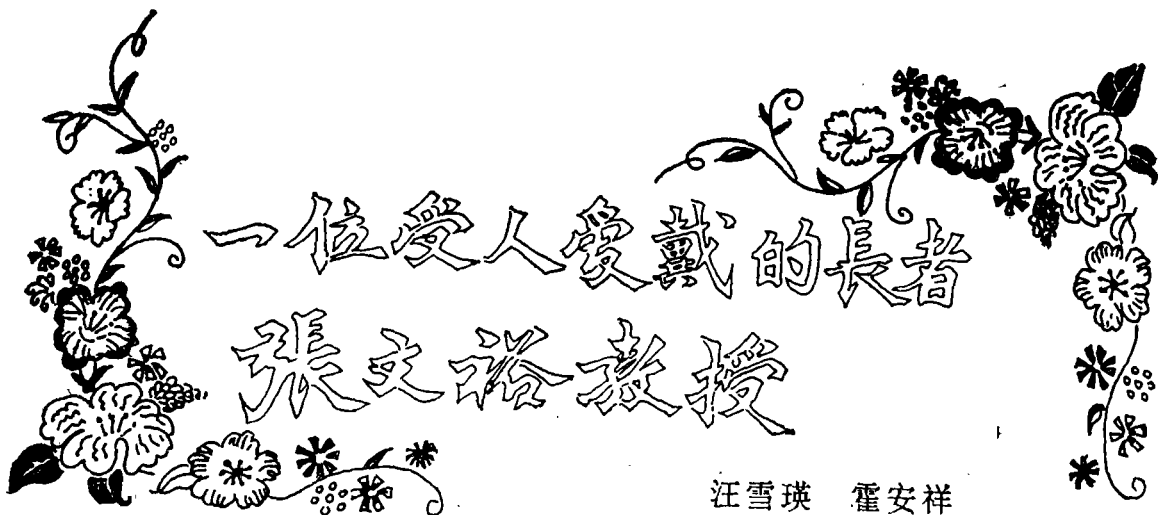 一位受人爱戴的長者
張文裕教授
汪雪瑛　霍安祥